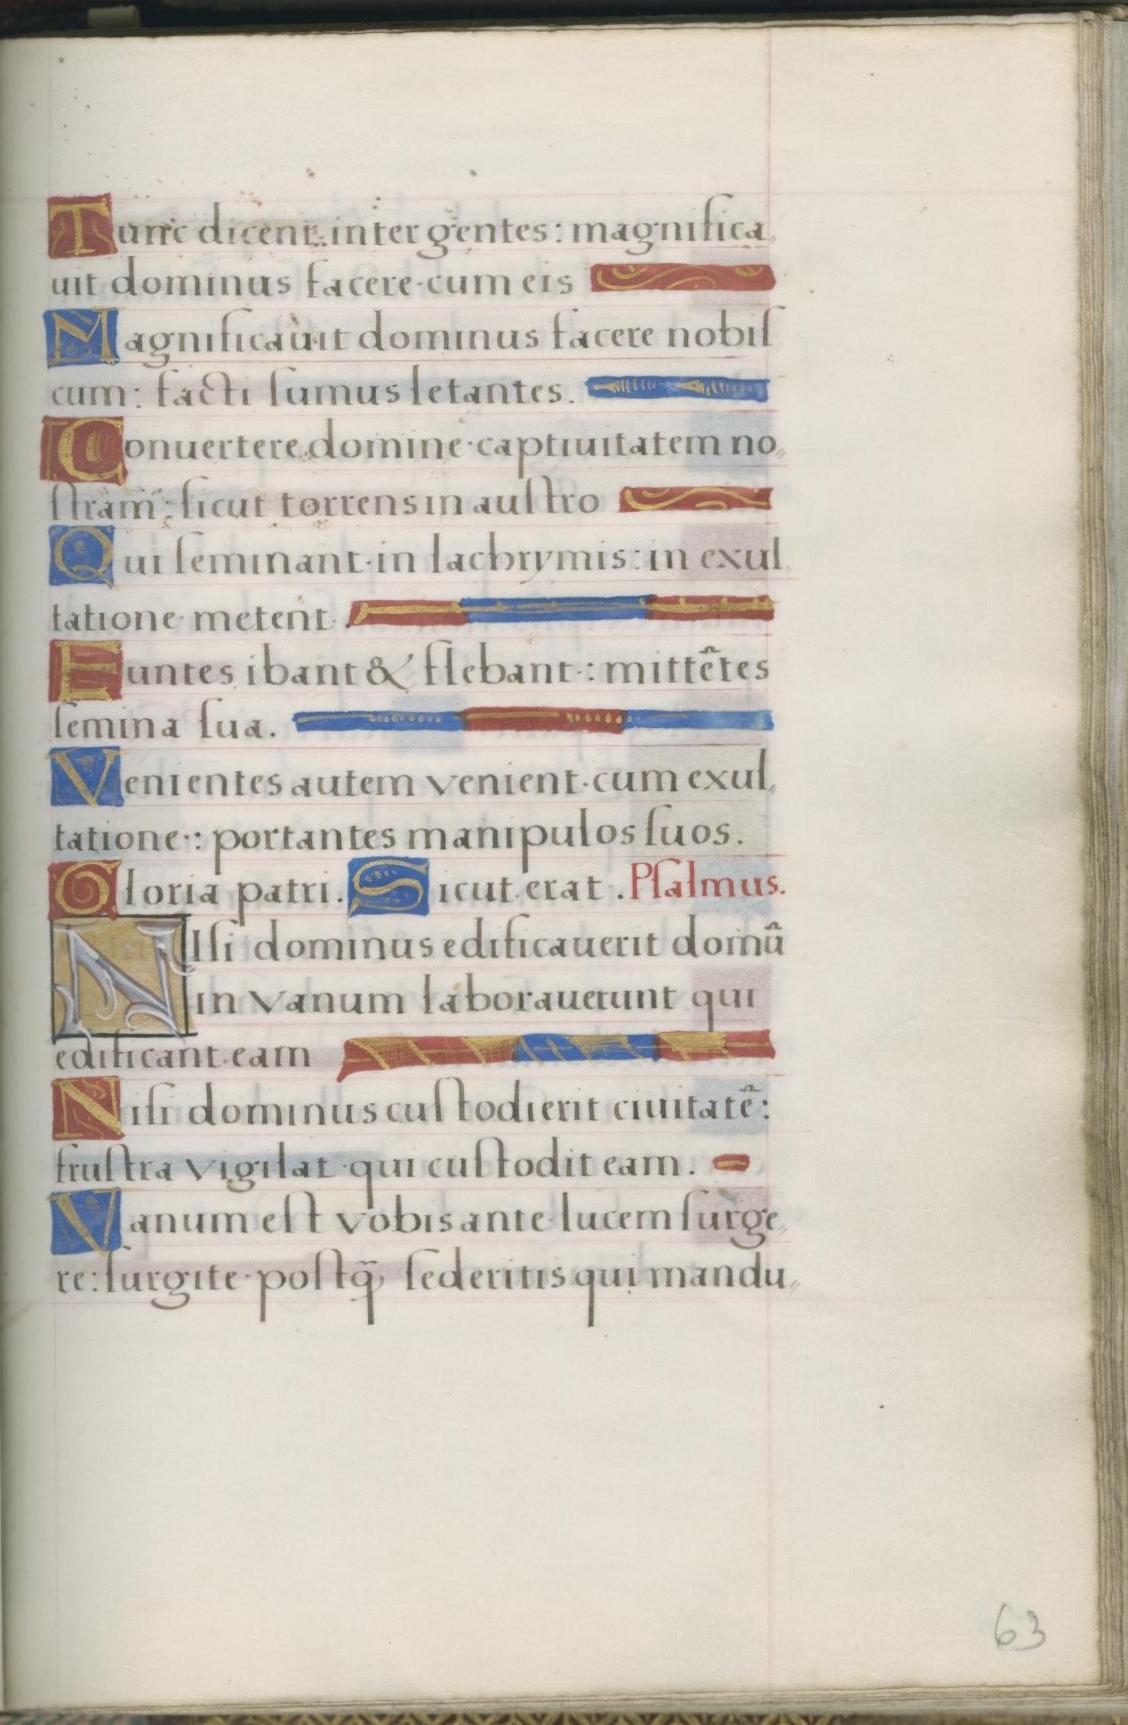 Tunc dicent inter gentes: magnifica,
uit dominus facere cum eis
Magnificauit dominus facere nobiſ
cum: facti ſumus letantes.
Conuertere domine captiuitatem no,,
ſtram: ſicut torrens in auſtro
Qui ſeminant in lachrymis: in exul
tatione metent.
Euntes ibant & flebant: mittẽtes
ſemina ſua.
Venientes autem venient cum exul,
tatione: portantes manipulos ſuos.
Gloria patri. Sicut erat. Pſalmus.
NIſi dominus edificauerit domũ
in vanum laborauerunt qui
edificant eam
Niſi dominus cuſtodierit ciuitatẽ:
fruſtra vigilat qui cuſtodit eam.
Vanum eſt vobis ante lucem ſurge,
re: ſurgite poſtq̃ ſederitis qui mandu,,
63